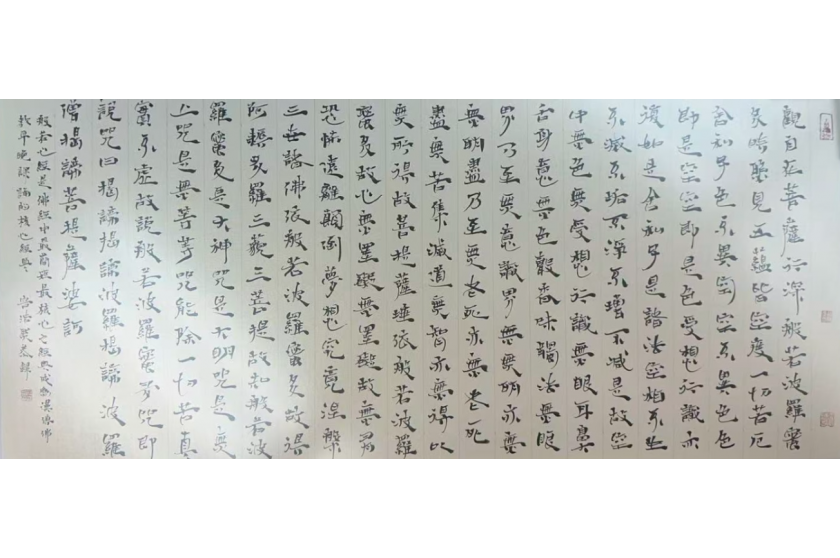 觀自在菩薩行深般若波羅蜜
多時照見五蘊皆空度一切苦厄
舍利子色不異空空不異色色
即是空空即是色受想行識亦
復如是舍利子是諸法空相不生
不滅不垢不淨不增不減是故空
中無色無受想行識無眼耳鼻
舌身意無色聲香味觸法無眼
界乃至無意識界無無明亦無
無明盡乃至無老死亦無老死
盡無苦集滅道無智亦無得以
無所得故菩提薩埵依般若波羅
蜜多故心無罣礙無罣礙故無有
恐怖遠離顛倒夢想究竟涅槃
三世諸佛依般若波羅蜜多故得
阿耨多羅三藐三菩提故知般若波
羅蜜多是大神咒是大明咒是無
上咒是無等等咒能除一切苦真
實不虛故說般若波羅蜜多咒即
說咒曰揭諦揭諦波羅揭諦波羅
僧揭諦菩提薩婆訶
般若心經是佛經中最簡短最核心之經典漢傳佛
教早晚課誦的核心經典